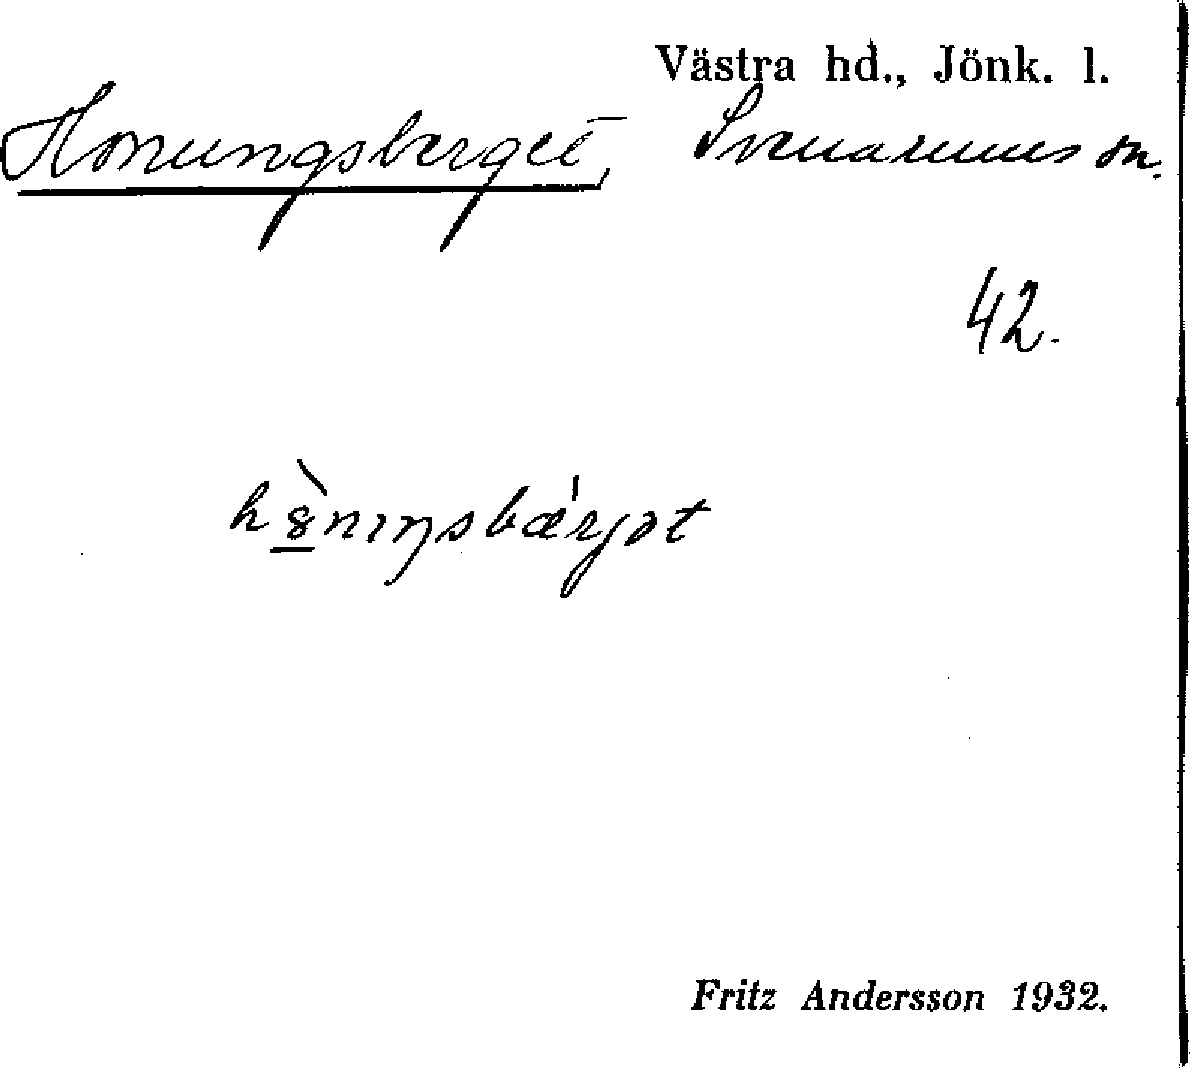 Västra hd., Jönk. l.
Honungsberget, Svenarums sn.
42.
h8̲̀nıŋsbæ'rjət
Fritz Andersson 1932.